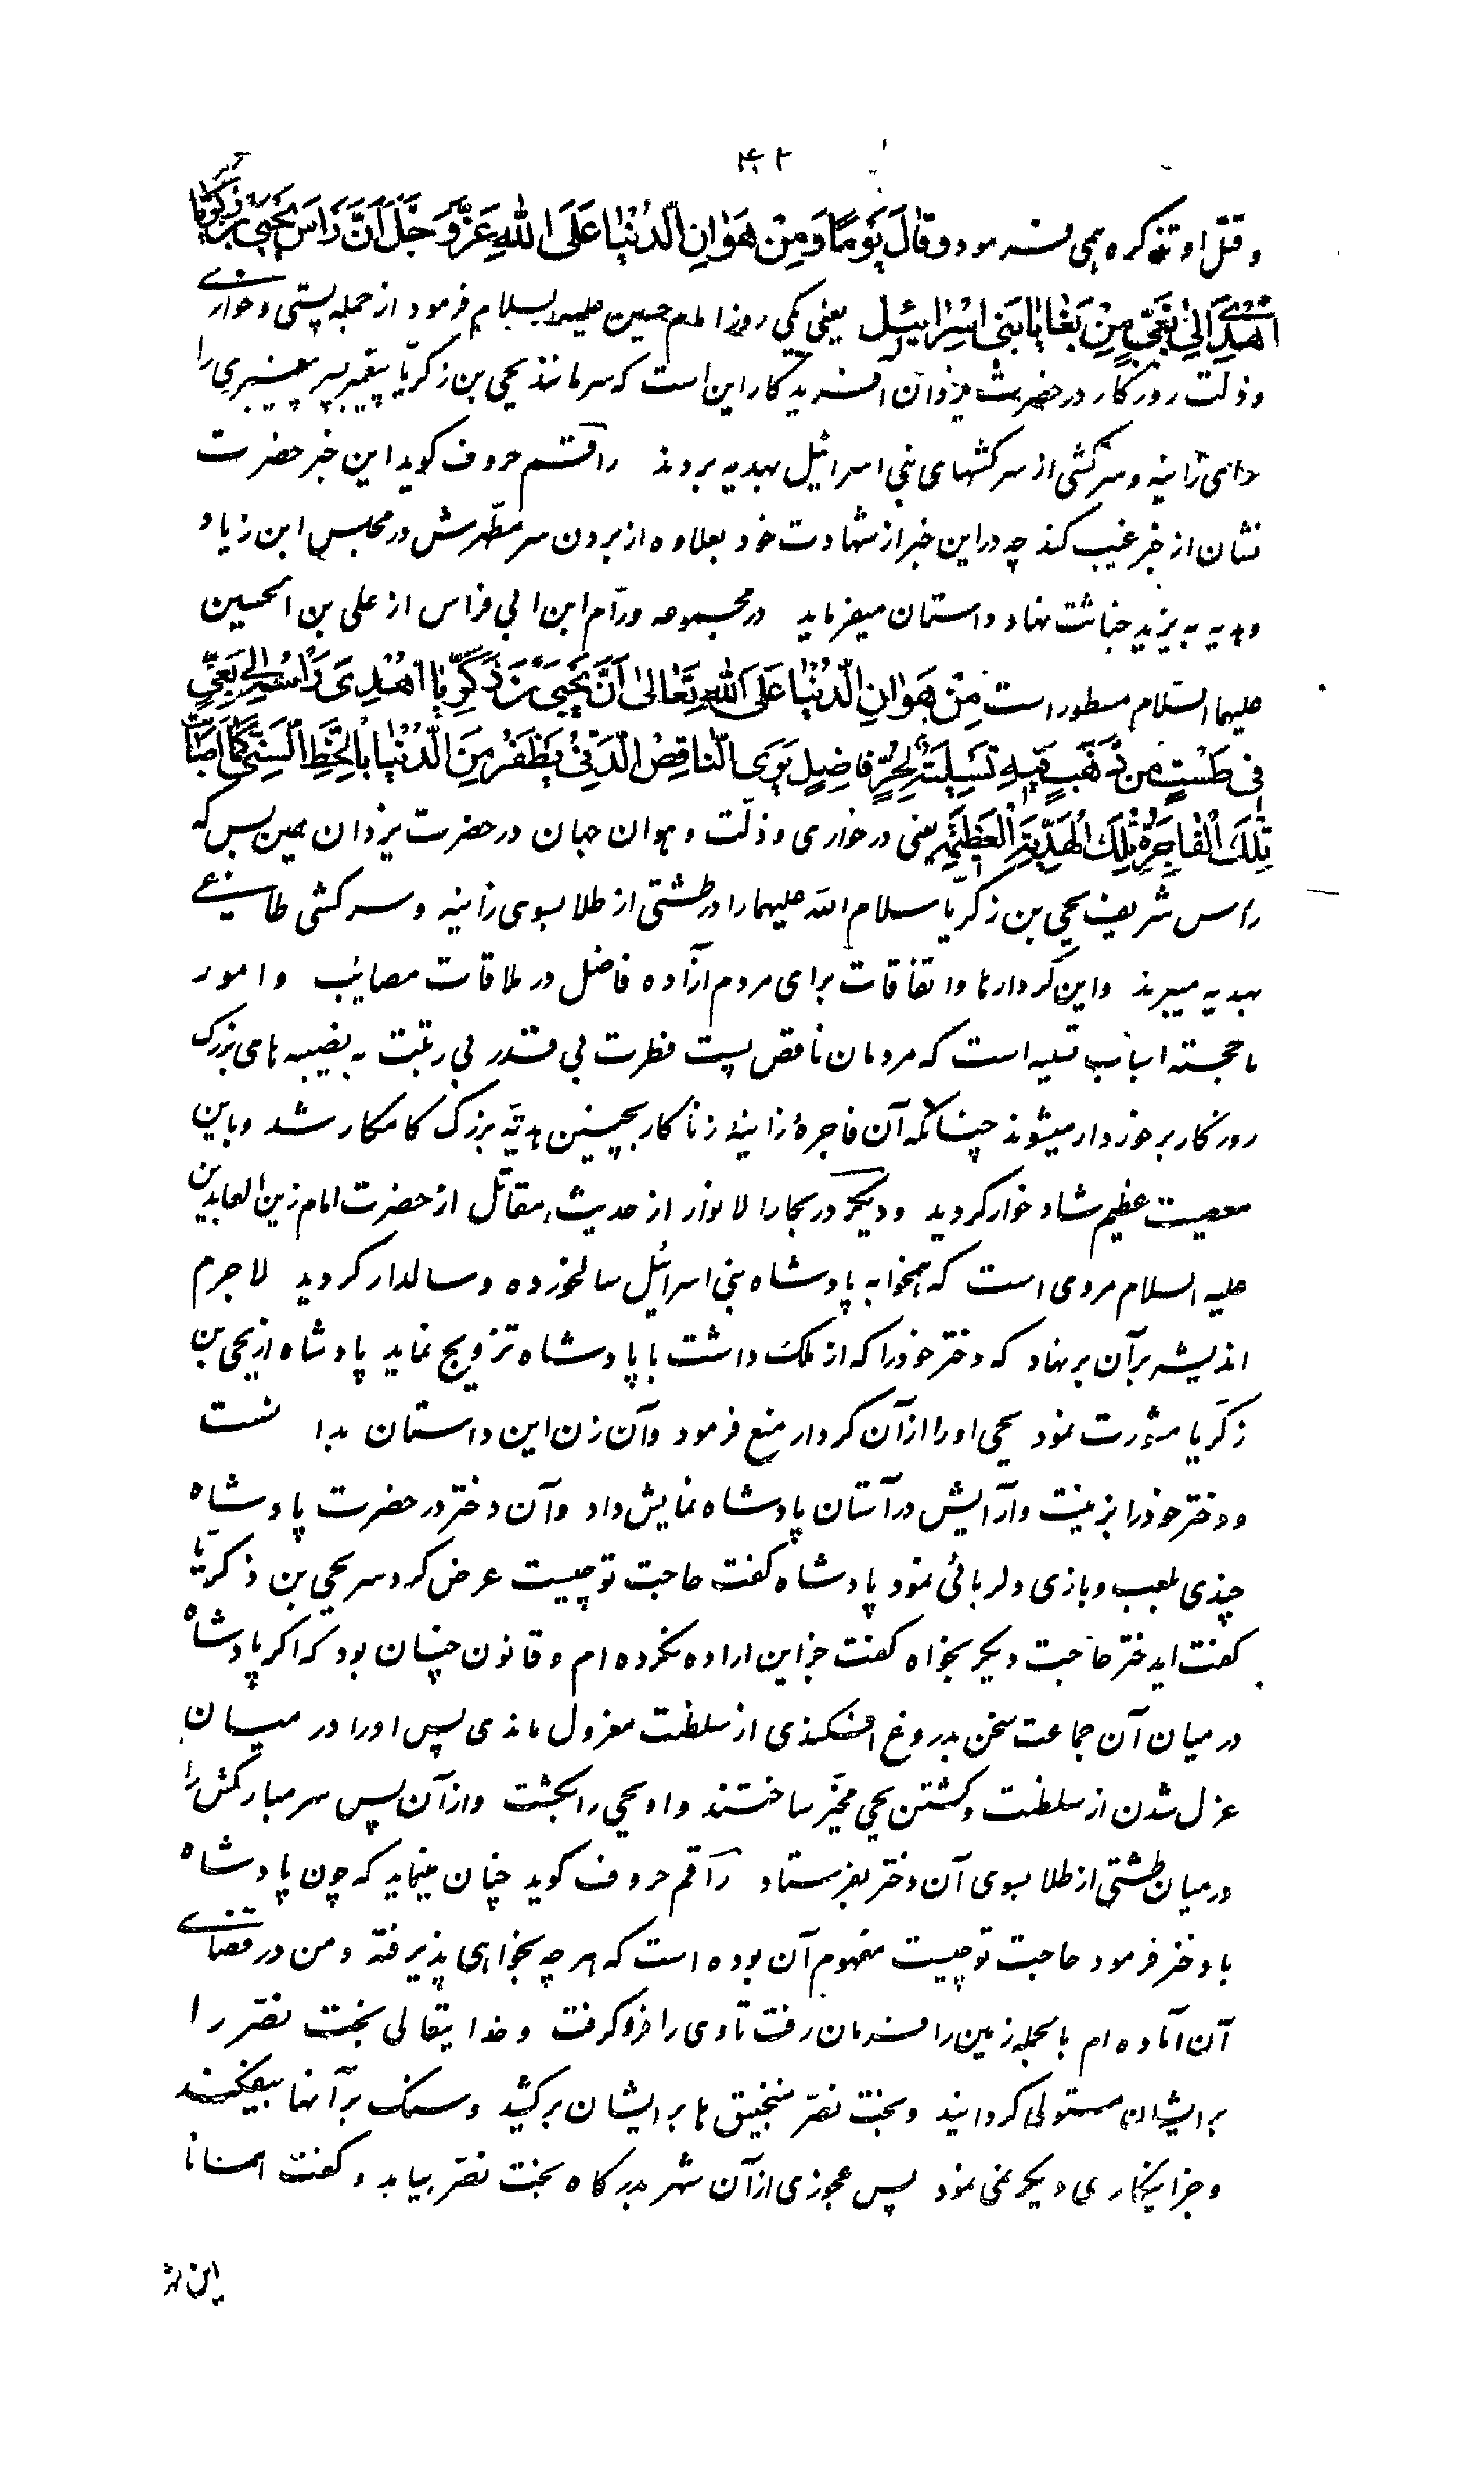 ۴۲
وقتل او تذکره همی فرمود وقال یَوْمًا وَمِنْ هَوانِ الدُّنْیا عَلَی اللهِ عَزَّ وَجَلَّ اَنَّ رَأسَ یَحْیَی بْنِ زَکَرِیّا
اُهْدِیَ اِلی بَغِیٍّ مِنْ بَغایا بَنی اِسْرائیلَ یعنی یکی روز امام حسین علیه السلام فرمود از جمله پستی وخواری
وذلت روزکار در حضرت یزدان آفریدکار این است که سر مانند یحیی بن زکریا پیغمبر پسر پیغمبری را
برای زانیه وسرکشی از سرکشهای بنی اسرائیل بهدیه بردند راقم حروف کوید این خبر حضرت
نشان از خبر غیب کند چه در این خبر از شهادت خود بعلاوه از بردن سر مطهرش در مجلس ابن زیاد
وهدیه به یزید خباثت نهاد داستان میفرماید در مجموعه ورام ابن ابی فراس از علی بن الحسین
علیهما السلام مسطور است مِنْ هَوانِ الدُّنْیا عَلَی اللهِ تَعالی اَنَّ یَحْیَی بْنَ زَکَرِیّا اُهْدِیَ رَأسُهُ اِلی بَغِیٍّ
فی طَسْتٍ مِنْ ذَهَبٍ فیهِ تَسْلِیَةٌ لِحُرٍّ فاضِلٍ یَرَی النّاقِصَ الدَّنِیَّ یَظْفَرُ مِنَ الدُّنْیا بِالْحَظِّ السَّنِیِّ کَما اَصابَتْ
تِلْکَ الْفاجِرَةُ تِلْکَ الْهَدِیَّةَ الْعَظیمَةَ یعنی در خواری وذلت وهوان جهان در حضرت یزدان همین بس که
رأس شریف یحیی بن زکریا سلام الله علیهما را در طشتی از طلا بسوی زانیه وسرکشی طاغیه
بهدیه میبرند واین کردارها واتفاقات برای مردم آزاده فاضل در ملاقات مصائب وامور
ناخجسته اسباب تسلیه است که مردمان ناقص پست فطرت بی قدر بی رتبت به نصیبه های بزرک
روزکار برخوردار میشوند چنانکه آن فاجرهٔ زانیهٔ زناکار بچنین هدیّه بزرک کامکار شد وباین
معصیت عظیم شادخوار کردید ودیکر در بحار الانوار از حدیث مقاتل از حضرت امام زین العابدین
علیه السلام مروی است که همخوابه پادشاه بنی اسرائیل سالخورده وسالدار کردید لاجرم
اندیشه بر آن برنهاد که دختر خود را که از ملک داشت با پادشاه تزویج نماید پادشاه از یحیی بن
زکریا مشورت نمود یحیی او را از آن کردار منع فرمود وآن زن این داستان بدانست
ودختر خود را بزینت وآرایش در آستان پادشاه نمایش داد وآن دختر در حضرت پادشاه
چندی بلعب وبازی ودلربائی نمود پادشاه کفت حاجت تو چیست عرض کرد سر یحیی بن زکریا
کفت ایدختر حاجت دیکر بخواه کفت جز این اراده نکرده ام وقانون چنان بود که اکر پادشاه
در میان آن جماعت سخن بدروغ افکندی از سلطنت معزول ماندی پس او را در میان
عزل شدن از سلطنت وکشتن یحیی مخیّر ساختند واو یحیی را بکشت واز آن پس سر مبارکش را
در میان طشتی از طلا بسوی آن دختر بفرستاد راقم حروف کوید چنان مینماید که چون پادشاه
با دختر فرمود حاجت تو چیست مفهوم آن بوده است که هر چه بخواهی پذیرفته ومن در قضای
آن آماده ام بالجمله زمین را فرمان رفت تا وی را فرو کرفت وخدایتعالی بخت نصّر را
بر ایشان مستولی کردانید وبخت نصّر منجنیق ها بر ایشان برکشید وسنک بر آنها بیفکند
وجز اینکاری دیکر نمی نمود پس عجوزی از آن شهر بدرکاه بخت نصّر بیامد وکفت همانا
این شهر